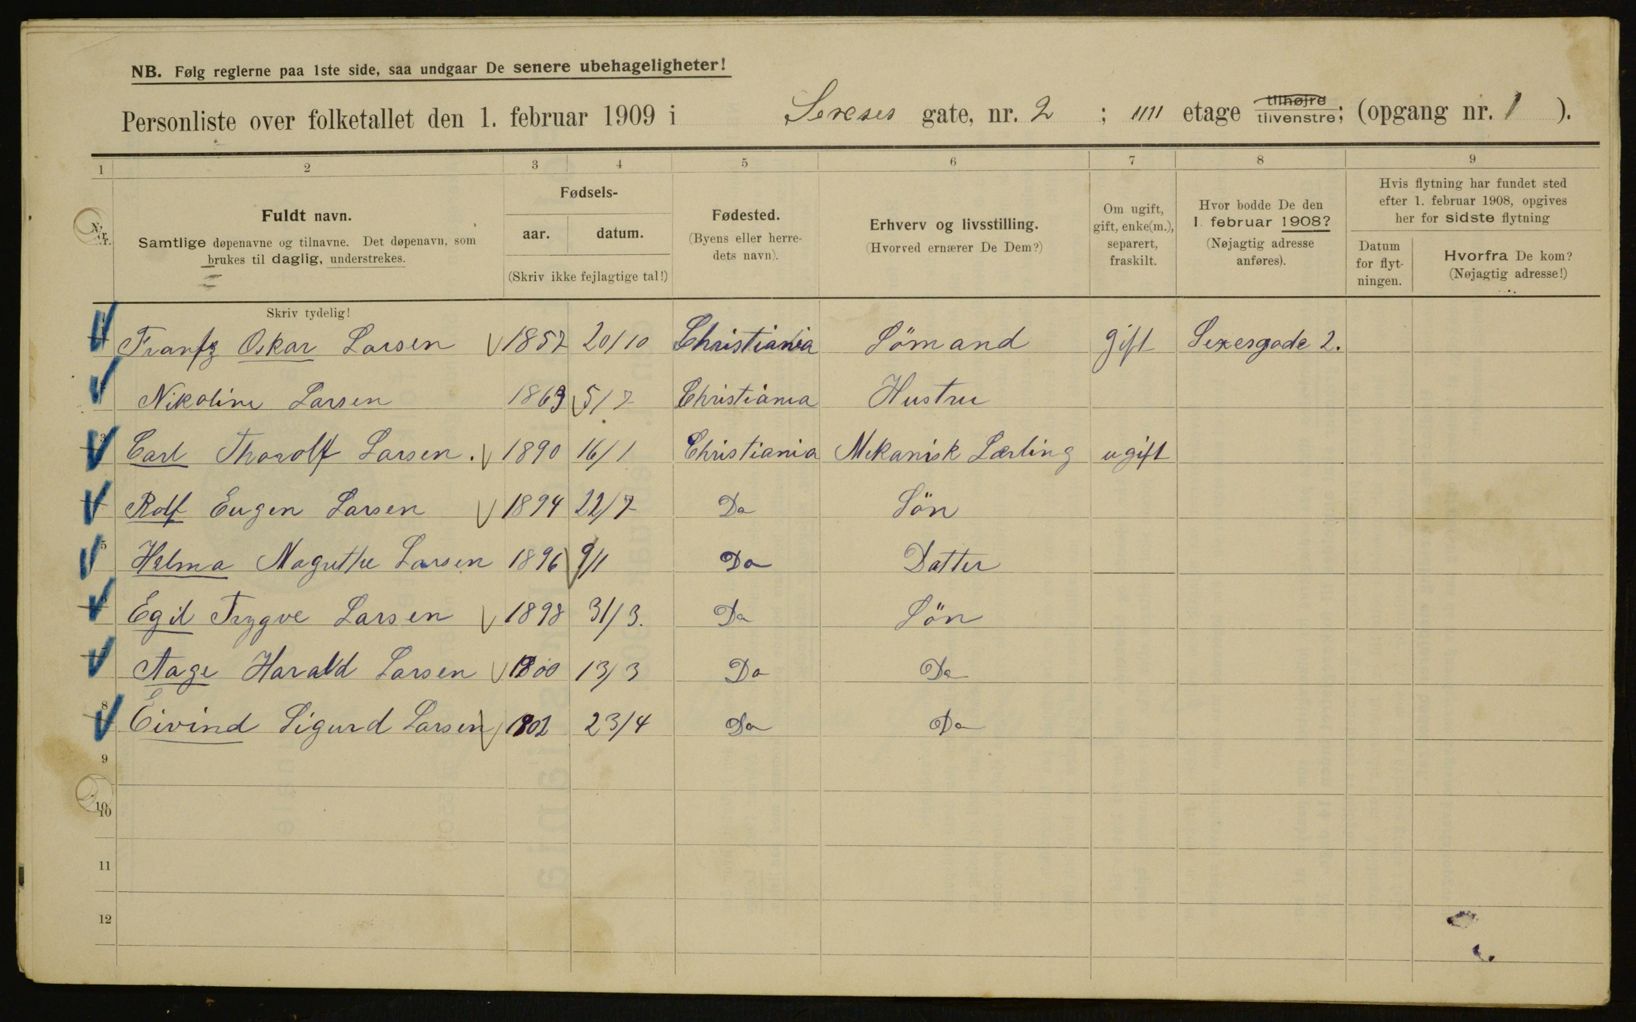 NB. Følg reglerne paa 1ste side, saa undgaar De senere ubehageligheter!
Personliste over folketallet den 1. februar 1909 i Sexeses gate, nr. 2 ; IIII etage tilhøjre tilvenstre; (opgang nr. 1 ).
1 2 3 4 5 6 7 8 9
Nr.
Fuldt navn.
Samtlige døpenavne og tilnavne. Det døpenavn, som
brukes til daglig, understrekes.
Fødsels-
aar. datum.
(Skriv ikke fejlagtige tal!)
Fødested.
(Byens eller herre-
dets navn).
Erhverv og livsstilling.
(Hvorved ernærer De Dem?)
Om ugift,
gift, enke(m.),
separert,
fraskilt.
Hvor bodde De den
1. februar 1908?
(Nøjagtig adresse
anføres).
Hvis flytning har fundet sted
efter 1. februar 1908, opgives
her for sidste flytning
Datum
for flyt-
ningen.
Hvorfra De kom?
(Nøjagtig adresse!)
Skriv tydelig!
Frantz Oskar Larsen 1857 20/10 Christiania Sömand gift Sexesgade 2.
Nikoline Larsen 1863 5/7 Christiania Hustru
3 Carl Thorolf Larsen. 1890 16/1 Christiania Mekanisk Lærling ugift
Rolf Eugen Larsen 1894 22/7 Do Sön
5 Helma Magrethe Larsen 1896 9/1 Do Datter
Egil Trygve Larsen 1898 31/3. Do Sön
Aage Harald Larsen 1900 13/3 Do Do
8 Eivind Sigurd Larsen 1902 23/4 Do Do
9
10
11
12